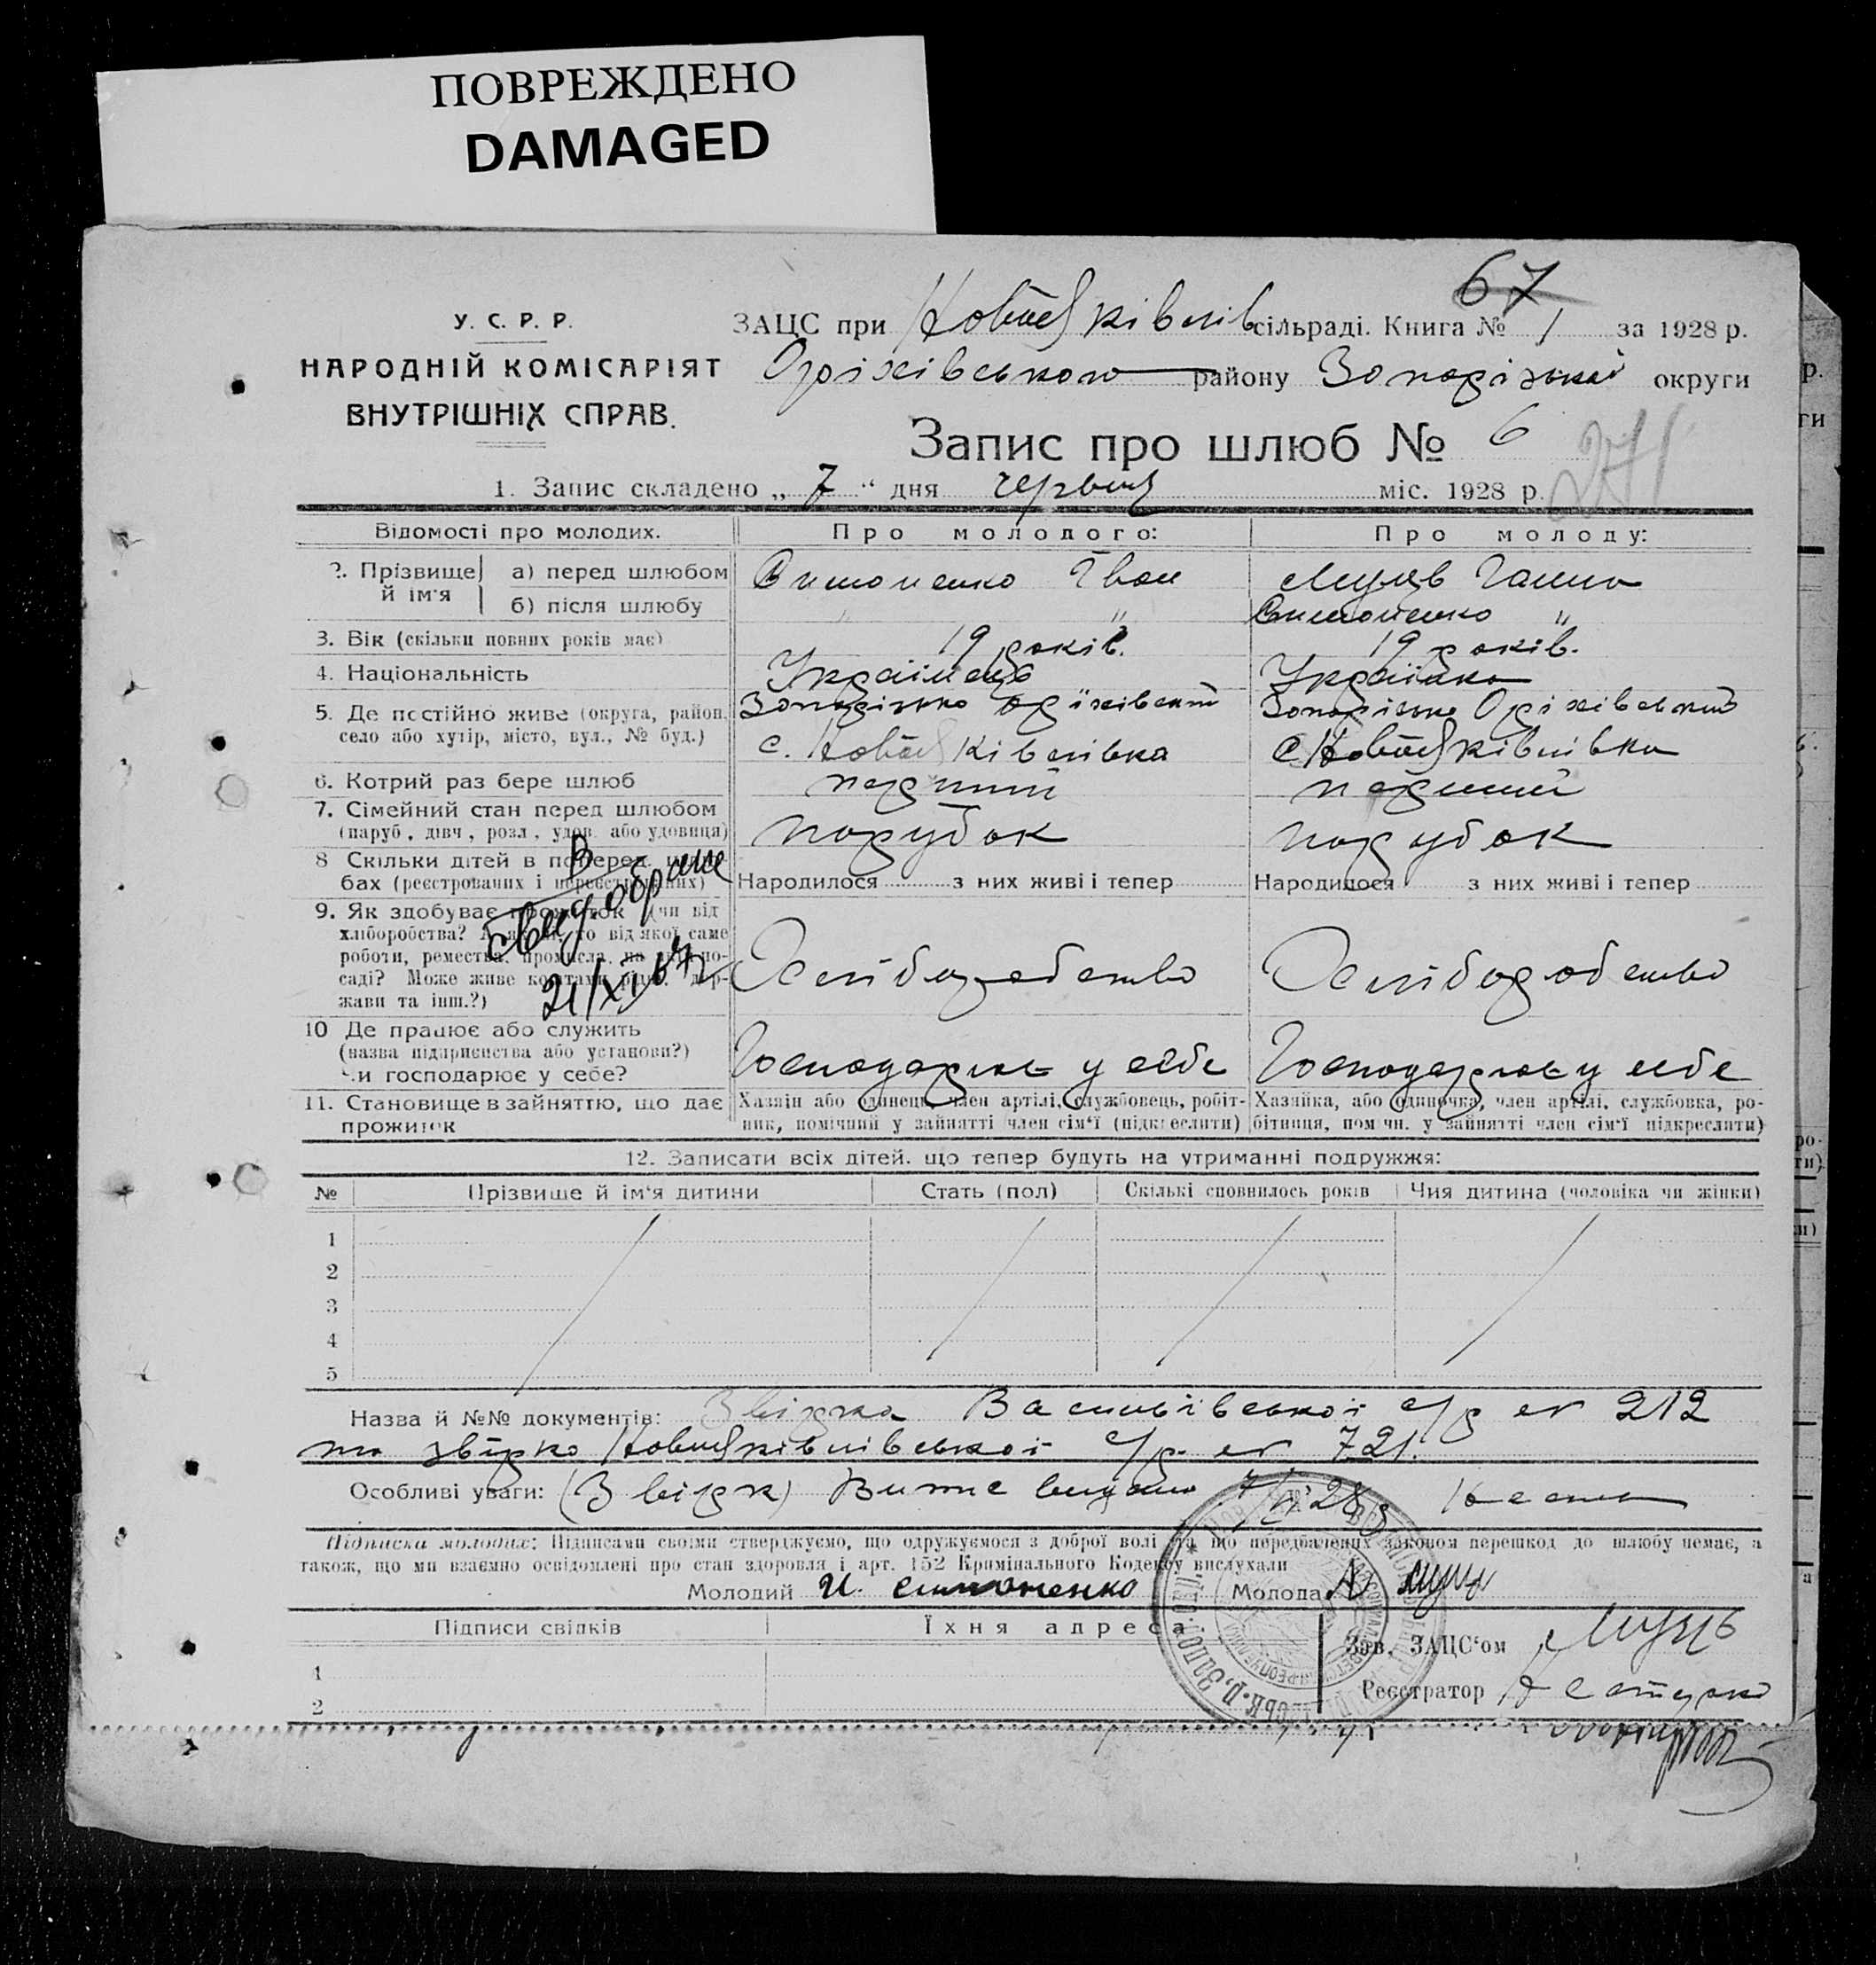 ПОВРЕЖДЕНО
DAMAGED
67
У. С. Р. Р.
НАРОДНІЙ КОМІСАРІЯТ
ВНУТРІШНІХ СПРАВ.
ЗАЦС при сільраді. Книга № 1 за 1928 р.
Оріхівського району Запорізької округи
Запис про шлюб № 6
271
1. Запис складено „ 7 “ дня червня міс. 1928 р.
Відомості про молодих. Про молодого: Про молоду:
2. Прізвище й ім'я а) перед шлюбом Симоненко Іван Муць Ганна
б) після шлюбу " " Симоненко "
3. Вік (скільки повних років має) 19 років. 19 років.
4. Національність Українець Українка
5. Де постійно живе (округа, район, Запоріжжя Оріхівський Запоріжжя Оріхівський
село або хутір, місто, вул., № буд.) с. с.
6. Котрий раз бере шлюб перший перший
7. Сімейний стан перед шлюбом
(паруб., дівч., розл., удов. або удовиця) парубок парубок
8 Скільки дітей в поперед.
бах (реєстрованих і Народилося з них живі і тепер Народилося з них живі і тепер
9. Як здобуває прожиток (чи від
хліборобства? від якої саме
роботи, ремества, промисла, по-
саді? Може живе коштами дер-
жави та інш.?) Хліборобство Хліборобство
В
21/XI 67
10 Де працює або служить
(назва підприємства або установи?)
чи господарює у себе? Господарює у себе Господарює у себе
11. Становище в зайняттю, що дає Хазяїн або одинець, член артілі, службовець, робіт- Хазяйка, або одиночка, член артілі, службовка, ро-
прожиток ник, помічний у зайнятті член сім'ї (підкреслити) бітниця, пом чн. у зайнятті член сім'ї підкреслити)
12. Записати всіх дітей, що тепер будуть на утриманні подружжя:
№ Прізвище й ім'я дитини Стать (пол) Скількі сповнилось років Чия дитина (чоловіка чи жінки)
1
2
3
4
5
Назва й №№ документів: Звідка Васинівської с/р № 212
та звідка с/р. № 721.
Особливі уваги: (Звідк) Витяг видано 7/VI 28 р
Підписка молодих: Підписами своїми стверджуємо, що одружуємося з доброї волі та що передбачених законом перешкод до шлюбу немає, а
також, що ми взаємно освідомлені про стан здоровля і арт. 152 Кримінального Кодексу вислухали
Молодий И. Симоненко Молода
Підписи свідків Їхня адреса
Зав. ЗАЦС'ом Муць
1
Реєстратор
2